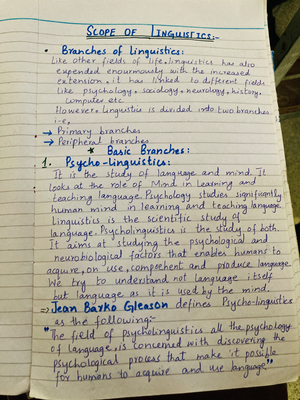 SCOPE OF LINGUISTICS:-
• Branches of Linguistics:
Like other fields of life, linguistics has also
expended enourmously with the increased
extension. it has linked to different fields
like psychology, sociology, neurology, history,
computer etc
However, Linguistics is divided into two branches
i.e,
→ Primary branches
→ Peripheral branches
* Basic Branches:
1. Psycho-linguistics:
It is the study of language and mind. It
looks at the role of Mind in learning and
teaching language. Psychology studies significantly
human mind in learning and teaching language.
Linguistics is the scientific study of
language. Psycholinguistics is the study of both.
It aims at studying the psychological and
neurobiological factors that enables humans to
acquire, on use, comprehent and produce language.
We try to understand not language itself
but language as it is used by the mind.
⇒ Jean Barko Gleason defines Psycho-linguistics
as the following:-
"The field of psycholinguistics all the psychology
of language, is concerned with discovering the
psychological process that make it possible
for humans to acquire and use language"